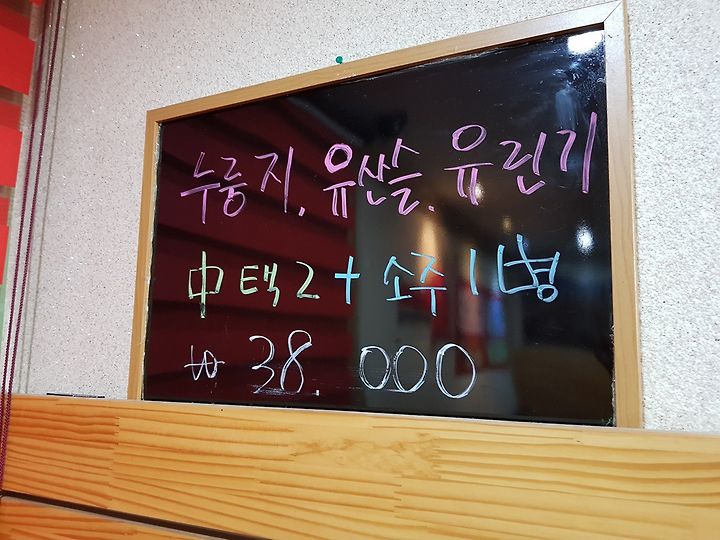 누룽지, 유산슬, 유린기
中 택 2 + 소주 1병
₩ 38,000